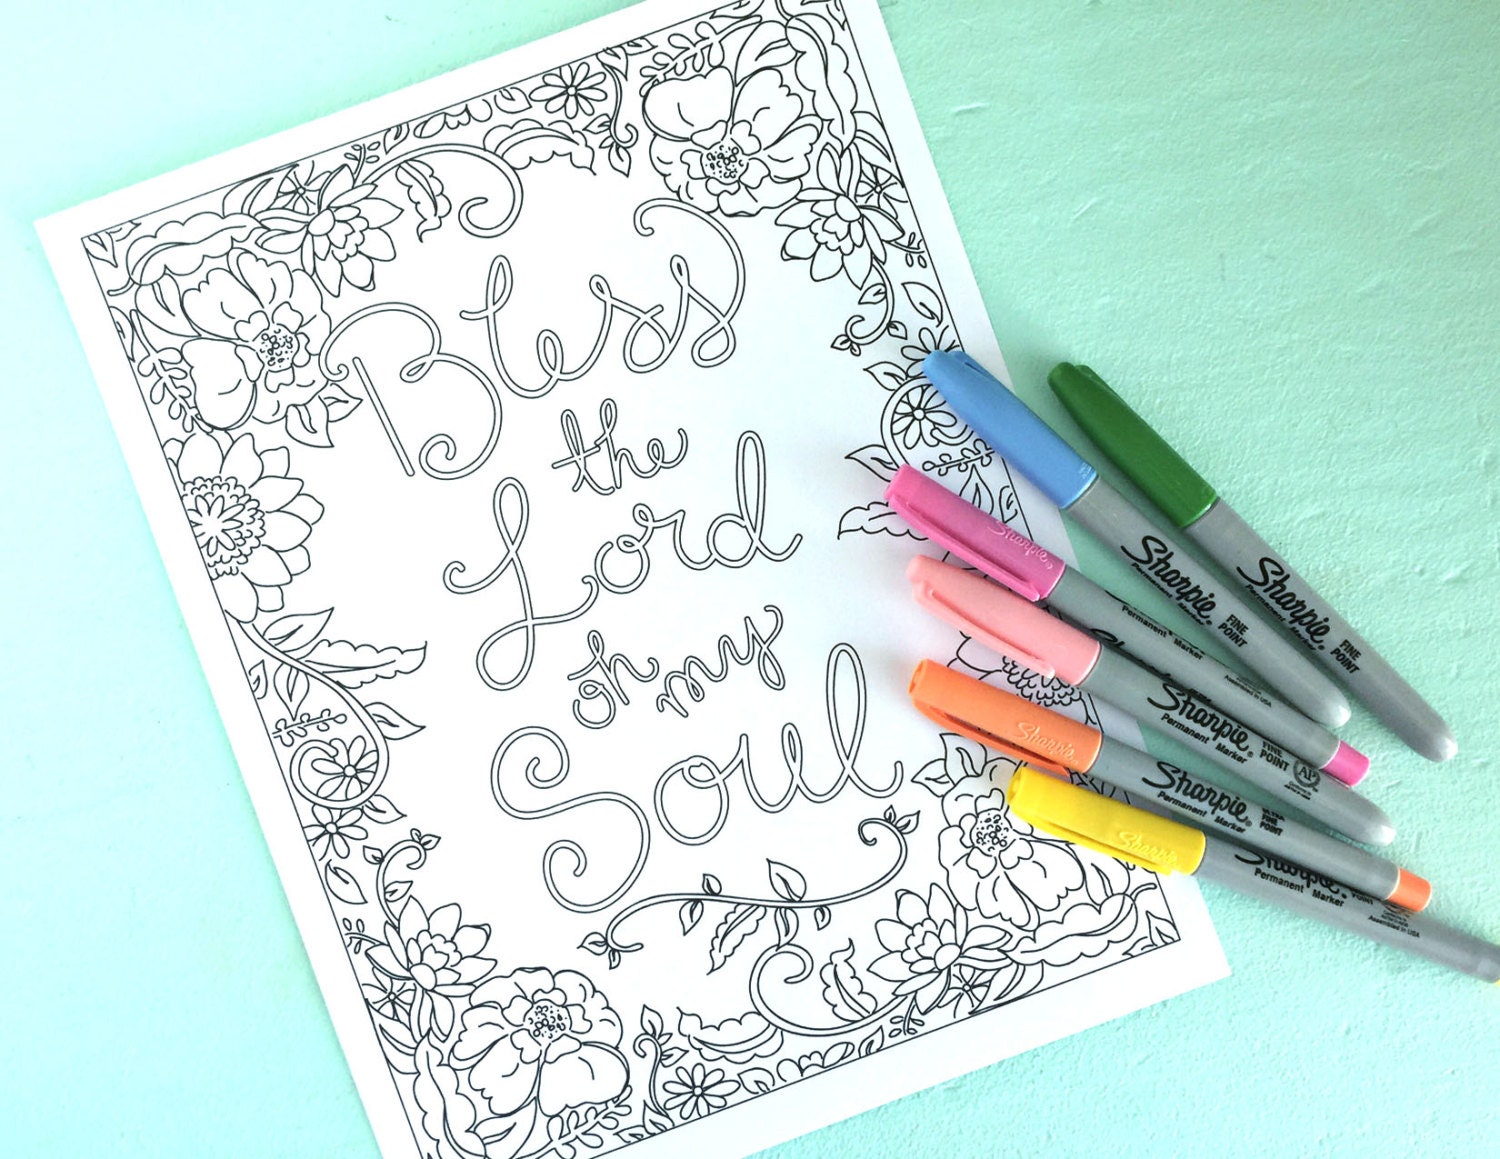 Bless
the
Lord
oh my
Soul
Sharpie
FINE POINT
Permanent Marker
Sharpie
FINE POINT
Permanent Marker
Sharpie
Permanent Marker
Sharpie
Permanent Marker
FINE POINT
AP
Sharpie
Sharpie
Permanent Marker
FINE POINT
Sharpie
Sharpie
Permanent Marker
POINT